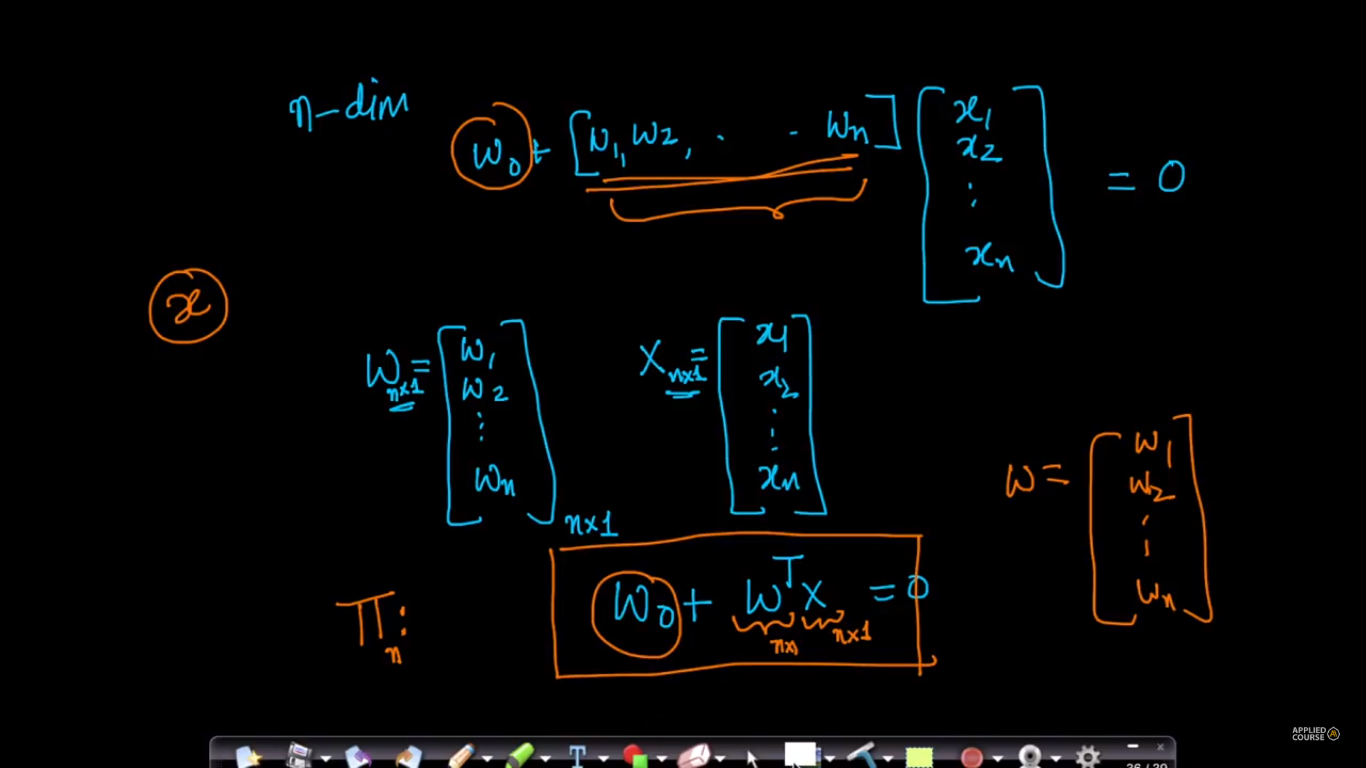 n-dim
w₀ + [w₁, w₂, . . wₙ] [x₁ x₂ ⋮ xₙ] = 0
x
Wₙₓ₁ = [w₁ w₂ ⋮ wₙ]ₙₓ₁
Xₙₓ₁ = [x₁ x₂ ⋮ xₙ]
w = [w₁ w₂ ⋮ wₙ]
πₙ: w₀ + wᵀx = 0
n×1
APPLIED
COURSE